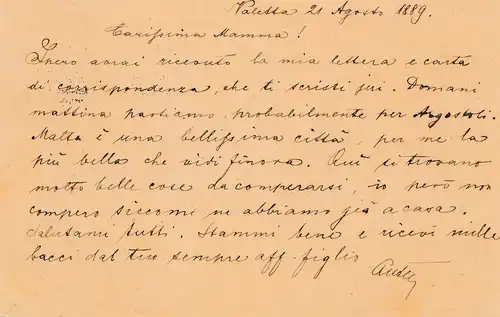 Valetta 21 Agosto 1889.
Carissima Mamma!
Spero avrai ricevuto la mia lettera e carta
di corrispondenza, che ti scristi jeri. Domani
mattina partiamo, probabilmente per Argostoli.
Malta è una bellissima città, per me la
più bella che vidi finora. Quì si trovano
molto belle cose da comperarsi, io però non
compero siccomi ne abbiamo già a casa.
Salutami tutti. Stammi bene e ricevi mille
bacci dal tuo sempre aff. figlio